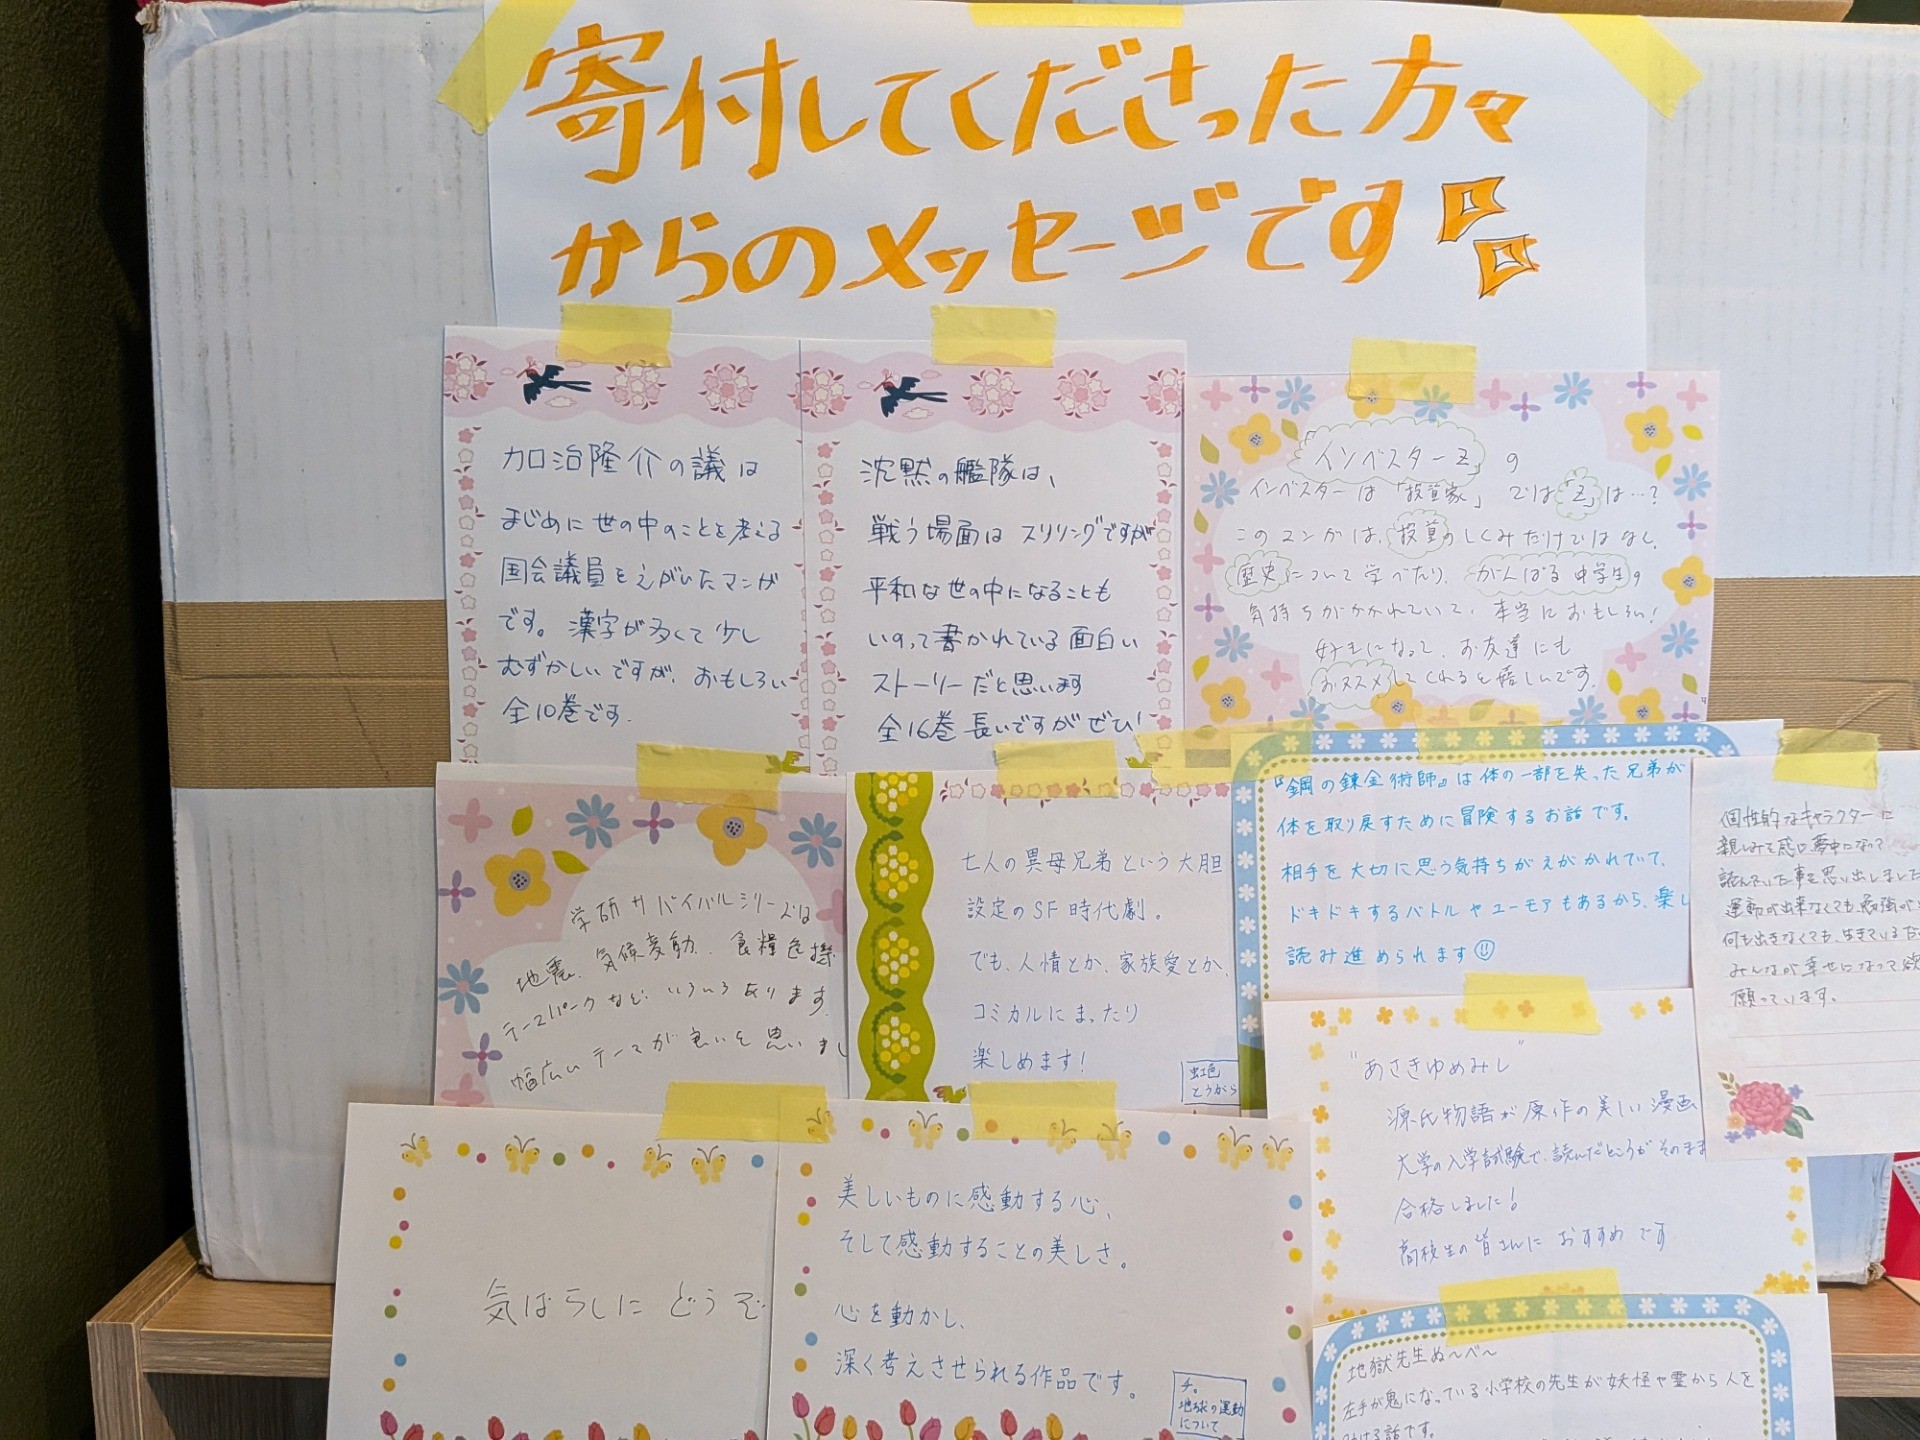 寄付してくださった方々
からのメッセージです
加治隆介の議は
まじめに世の中のことを考える
国会議員をえがいたマンガ
です。漢字が多くて少し
むずかしいですが、おもしろい
全10巻です.
沈黙の艦隊は、
戦う場面はスリリングですが
平和な世の中になることも
いのって書かれている面白い
ストーリーだと思います
全16巻 長いですがぜひ!
インベスターZ の
インベスターは「投資家」 では「Z」は…?
このマンガは、投資のしくみだけではなく、
歴史について学べたり、がんばる中学生の
気持ちがかかれていて、本当におもしろい!
好きになって、お友達にも
おススメしてくれると嬉しいです。
学研サバイバルシリーズは
地震、気候変動、食糧危機
テーマパークなど いろいろあります
幅広いテーマが良いと思いまし
七人の異母兄弟という大胆
設定のSF時代劇。
でも、人情とか、家族愛とか、
コミカルにまったり
楽しめます!
虹色
とうがら
『鋼の錬金術師』は体の一部を失った兄弟が
体を取り戻すために冒険するお話です。
相手を大切に思う気持ちがえがかれていて、
ドキドキするバトルやユーモアもあるから、楽し
読み進められます
個性的なキャラクターに
親しみを感じ夢中になって
読んでいた事を思い出しました
運動が出来なくても、勉強が
何も出きなくても、生きているだ
みんなが幸せになって欲
願っています。
"あさきゆめみし"
源氏物語が原作の美しい漫画
大学の入学試験で、読んだところがそのまま
合格しました!
高校生の皆さんに おすすめです
気ばらしに どうぞ
美しいものに感動する心、
そして感動することの美しさ。
心を動かし、
深く考えさせられる作品です。
チ。
地球の運動
について
地獄先生ぬ〜べ〜
左手が鬼になっている小学校の先生が妖怪や霊から人を
助ける話です。